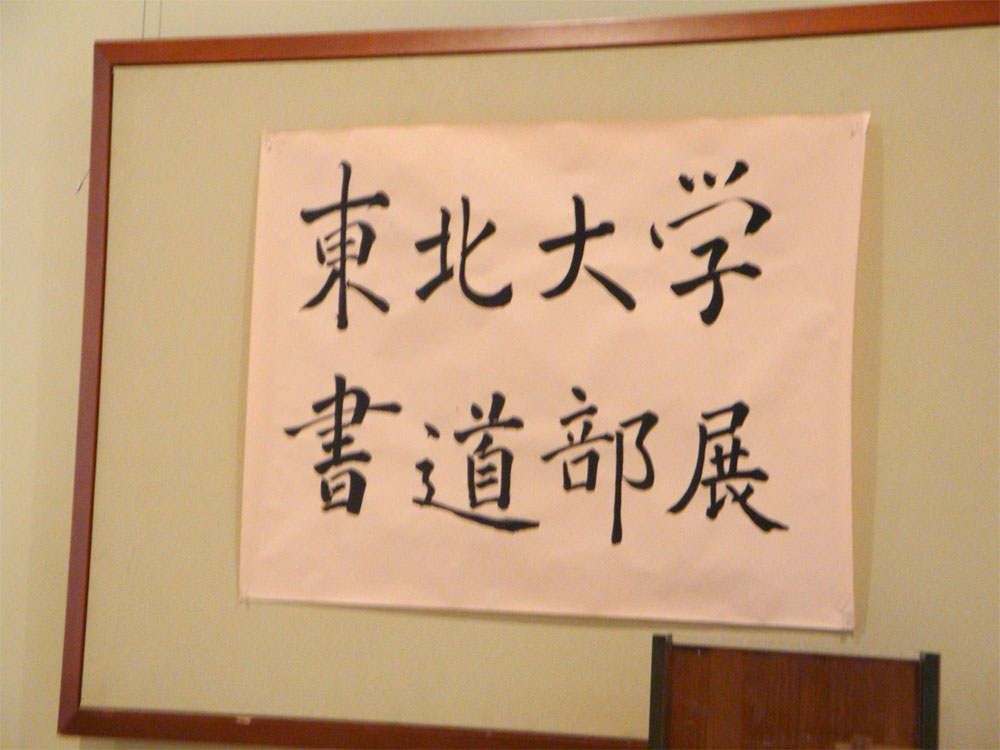 東北大学
書道部展